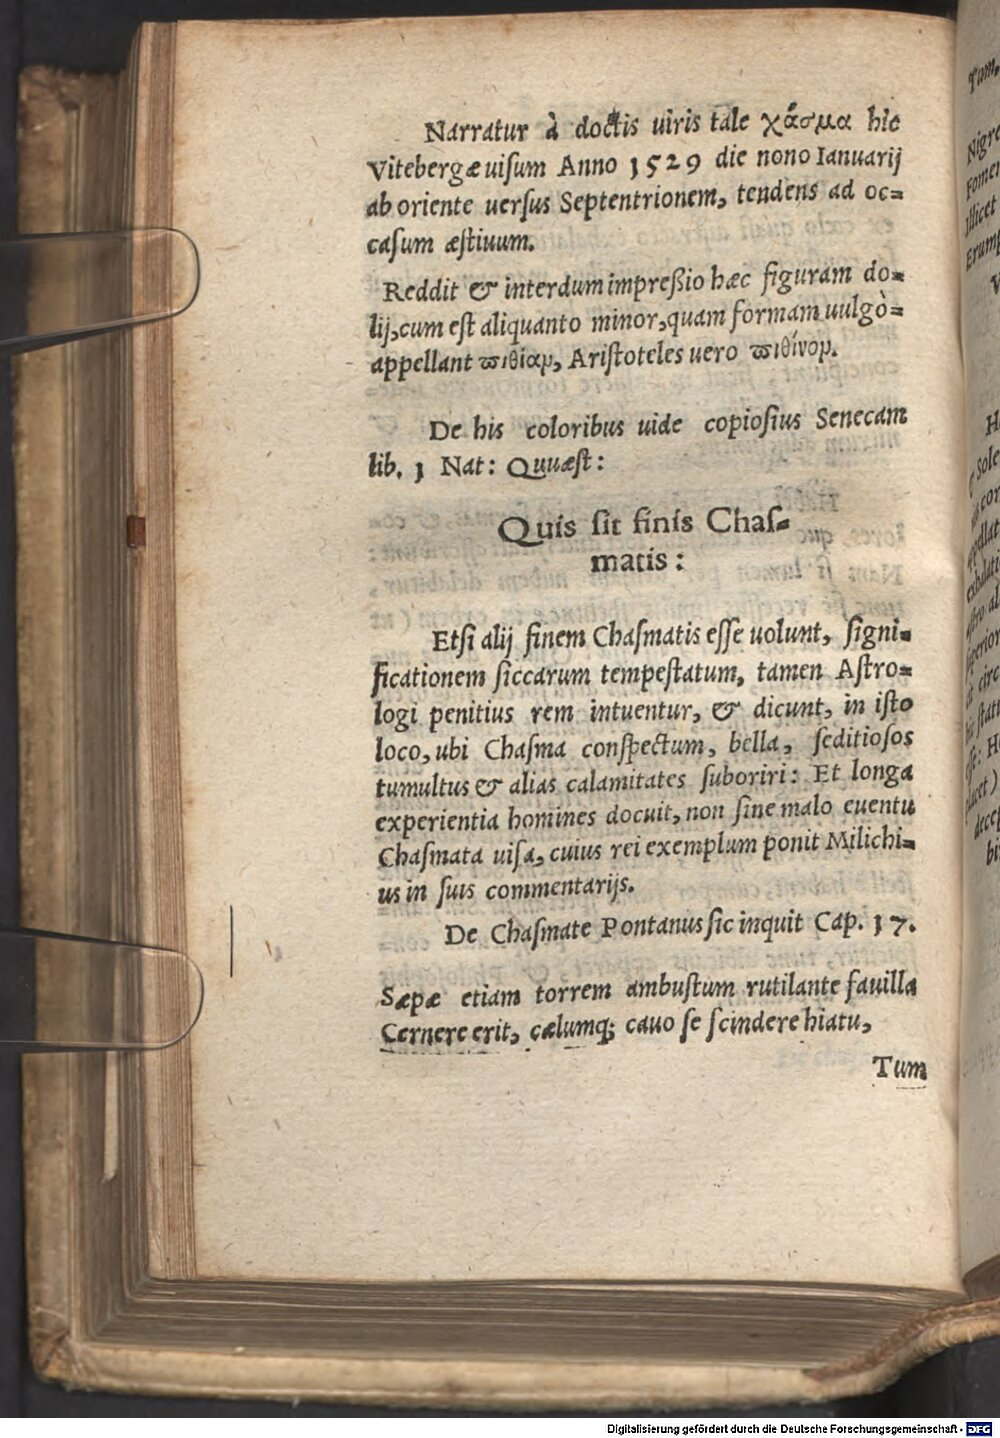 Narratur à doctis uiris tale χάσμα hic
Vitebergæ uiſum Anno 1529 die nono Ianuarij
ab oriente uerſus Septentrionem, tendens ad oc=
caſum æſtiuum.
Reddit & interdum impreßio hæc figuram do=
lij, cum eſt aliquanto minor, quam formam uulgò=
appellant ϖιθίαμ, Ariſtoteles uero ϖιθίνομ.
De his coloribus uide copioſius Senecam
lib. 1 Nat: Quuæſt:
Quis ſit finis Chaſ=
matis:
Etſi alij finem Chaſmatis eſſe uolunt, ſigni=
ficationem ſiccarum tempeſtatum, tamen Aſtro=
logi penitius rem intuentur, & dicunt, in iſto
loco, ubi Chaſma conſpectum, bella, ſeditioſos
tumultus & alias calamitates ſuboriri: Et longa
experientia homines docuit, non ſine malo euentu
Chaſmata uiſa, cuius rei exemplum ponit Milichi=
us in ſuis commentarijs.
De Chaſmate Pontanus ſic inquit Cap. 17.
Sæpæ etiam torrem ambuſtum rutilante fauilla
Cernere erit, cælumq; cauo ſe ſcindere hiatu,
Tum
Tam.
Nigre
Fomen
Illicet
Erump
& Sole
Digitalisierung gefördert durch die Deutsche Forschungsgemeinschaft - DFG